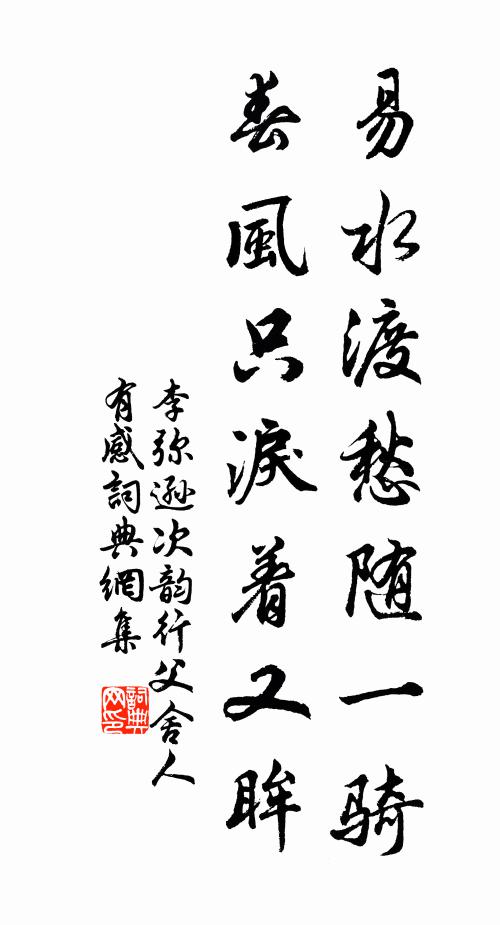 易水渡愁随一骑
春風只淚着又眸
李弥遜次韵行父舍人
有感詞典網集
詞典网印